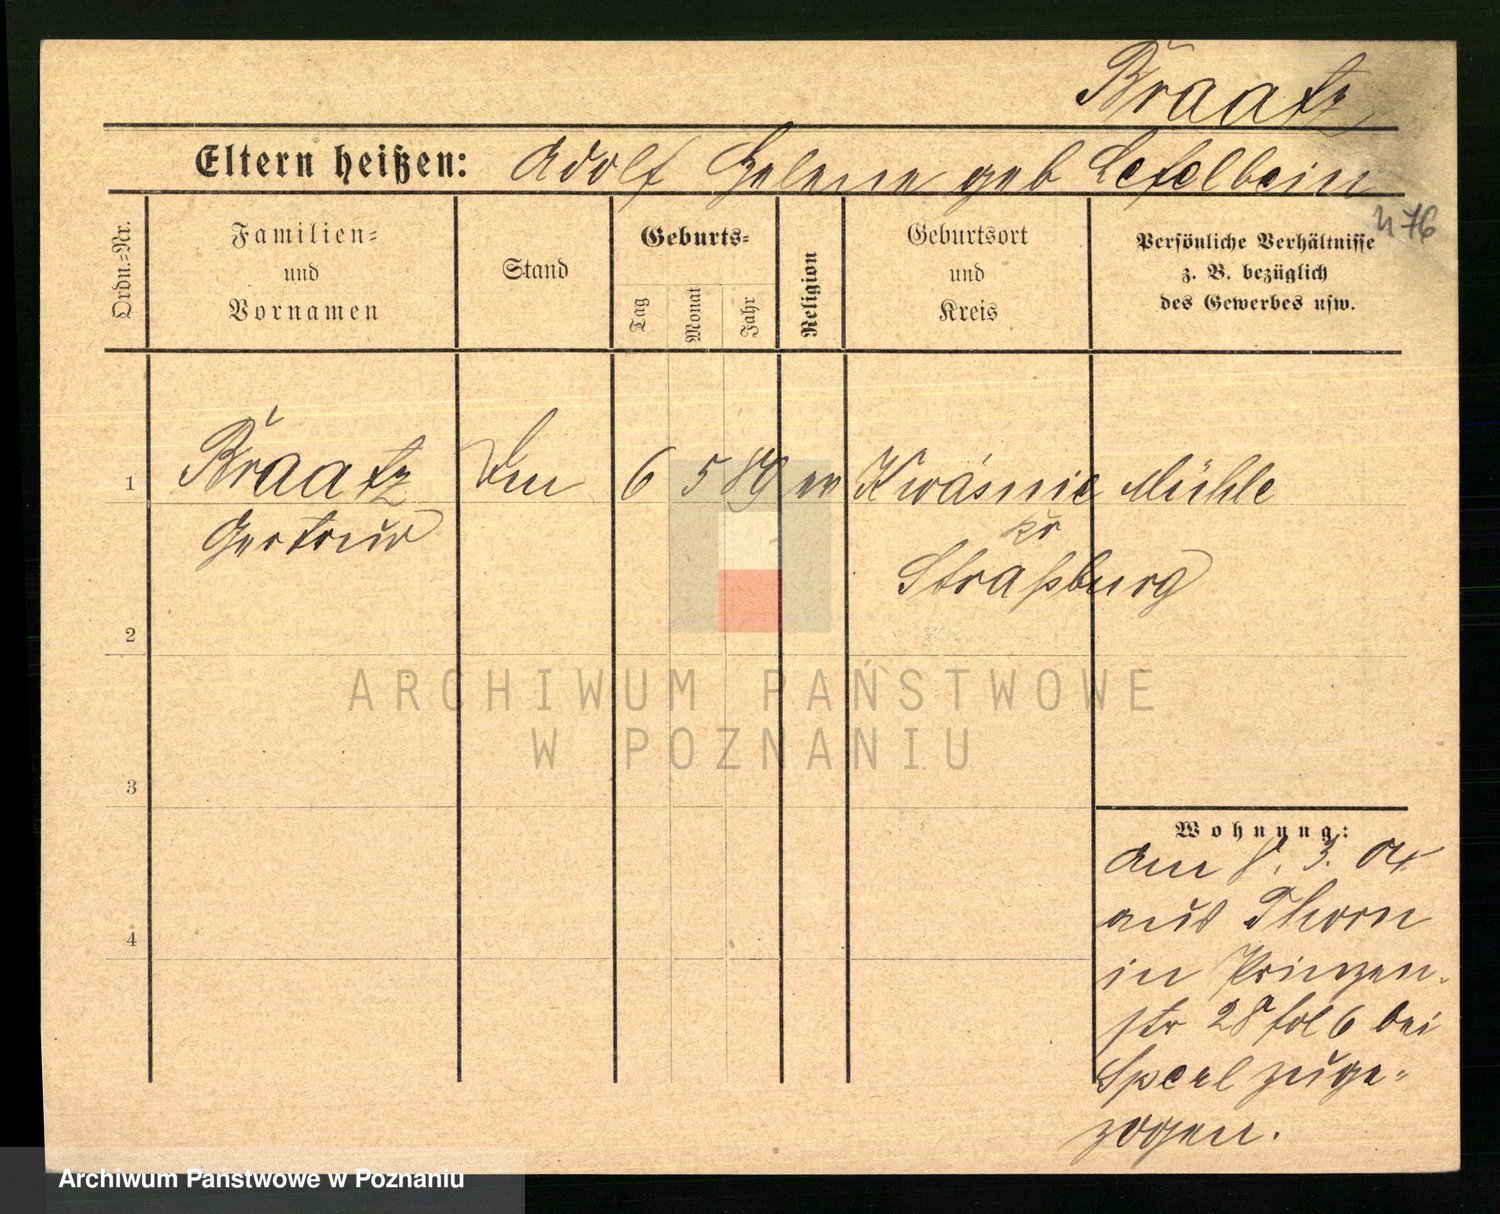 Braatz
Eltern heißen: Adolf Helene geb Lefelbein
n 76
Ordn.=Nr.
Familien=
und
Vornamen
Stand
Geburts=
Tag
Monat
Jahr
Religion
Geburtsort
und
Kreis
Persönliche Verhältnisse
z. B. bezüglich
des Gewerbes usw.
1 Braatz 6 5 89 ev Kwásnie Mühle
Gertrud kr
Straßburg
2
3
4
Wohnung:
am 8. 3. 04
aus Thorn
in Prinzen=
str 28 fol 6 bei
zuge=
zogen.
ARCHIWUM PAŃSTWOWE
W POZNANIU
Archiwum Państwowe w Poznaniu